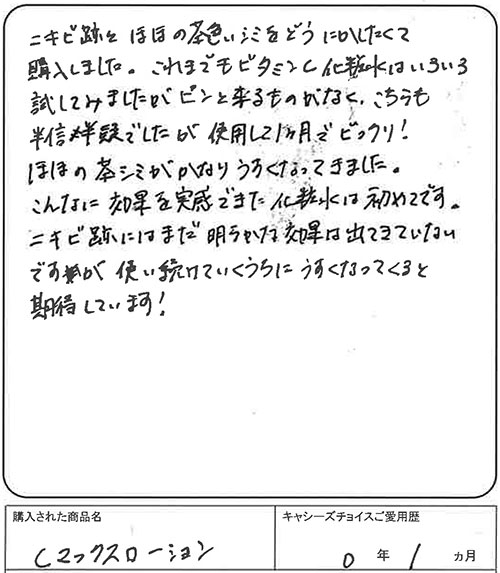 ニキビ跡と ほほの茶色いシミをどうにかしたくて
購入しました。これまでもビタミンC化粧水はいろいろ
試してみましたがピンと来るものがなく、こちらも
半信半疑でしたが 使用して1ヵ月でビックリ!
ほほの茶シミがかなりうすくなってきました。
こんなに効果を実感できた化粧水は初めてです。
ニキビ跡にはまだ明らかな効果は出てきていない
ですが 使い続けていくうちに うすくなってくると
期待しています!
購入された商品名
キャシーズチョイスご愛用歴
Cマックスローション
0 年 1 ヵ月